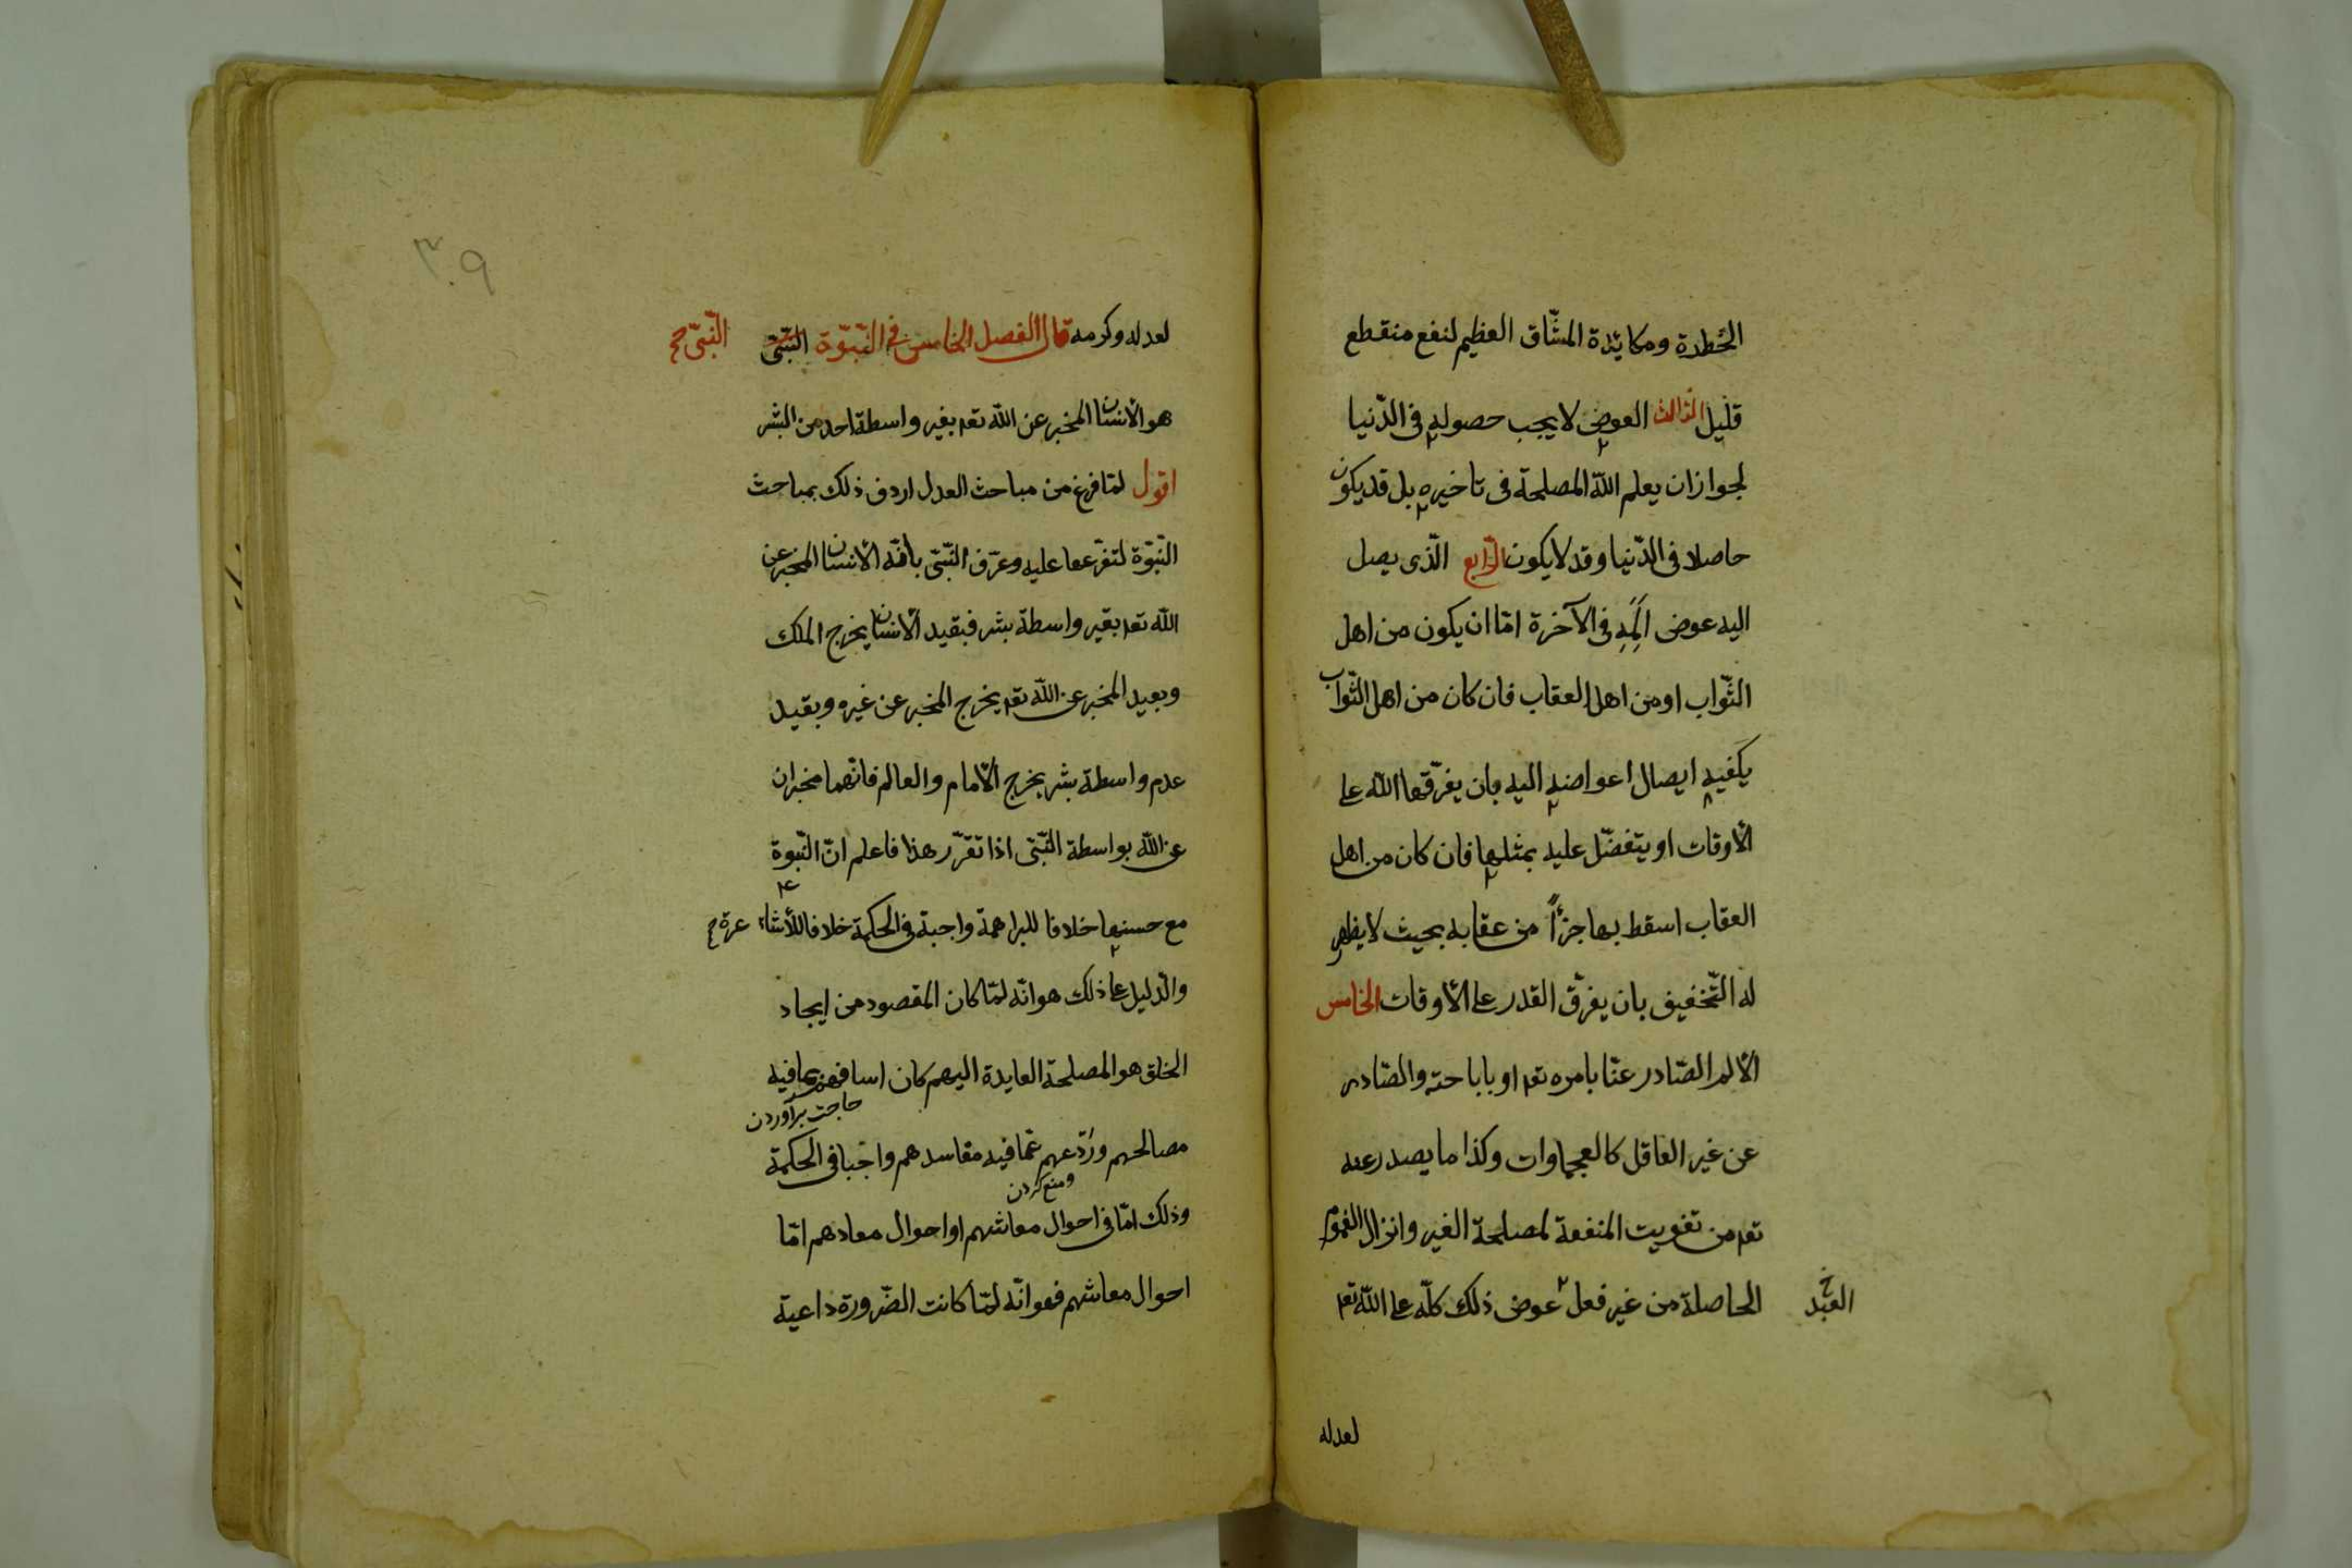 الخطرة ومكابدة المشّاق العظيم لنفع منقطع
قليل الثالث العوض لا يجب حصوله فى الدّنيا
لجواز ان يعلم اللّه المصلحة فى تاخيره بل قد يكون
حاصلا فى الدّنيا وقد لا يكون الرّابع الّذى يصل
اليه عوض اَلَمِهِ فى الآخرة امّا ان يكون من اهل
الثّواب او من اهل العقاب فان كان من اهل الثّواب
يكفيه ايصال اعواضه اليه بان يفرّقها اللّه على
الأوقات او يتفضّل عليه بمثلها فان كان من اهل
العقاب اسقط بها جزءًا من عقابه بحيث لا يظهر
له التّخفيف بان يفرّق القدر على الأوقات الخامس
الألم الصّادر عنّا بامره تعه او باباحته والصّادر
عن غير العاقل كالعجماوات وكذا ما يصدر عنه
تعه من تفويت المنفعة لمصلحة الغير وانزال الغموم
الحاصلة من غير فعل عوض ذلك كلّه على اللّه تعه
العبد خ
لعدله
٣٠٩
لعدله وكرمه قال الفصل الخامس فى النّبوّة النّبىّ
النّبىّ صح
هو الأنسان المخبر عن اللّه تعه بغير واسطة احد من البشر
اقول لمّا فرغ من مباحث العدل اردف ذلك بمباحث
النّبوّة لتفرّعها عليه وعرّف النّبىّ بانّه الأنسان المخبر عن
اللّه تعه بغير واسطة بشر فبقيد الأنسان يخرج الملك
وبقيد المخبر عن اللّه تعه يخرج المخبر عن غيره وبقيد
عدم واسطة بشر يخرج الأمام والعالم فانّهما مخبران
عن اللّه بواسطة النّبىّ اذا تقرّر هذا فاعلم انّ النّبوة
مع حسنها خلافا للبراهمة واجبة فى الحكمة خلافا للأشاعرة صح
والدّليل على ذلك هو انّه لمّا كان المقصود من ايجاد
الخلق هو المصلحة العايدة اليهم كان اسعافهم بما فيه
حاجت برآوردن
مصالحهم وردّعهم عمّا فيه مفاسدهم واجبا فى الحكمة
ومنع كردن
وذلك امّا فى احوال معاشهم او احوال معادهم امّا
احوال معاشهم فهو انّه لمّا كانت الضّرورة داعية